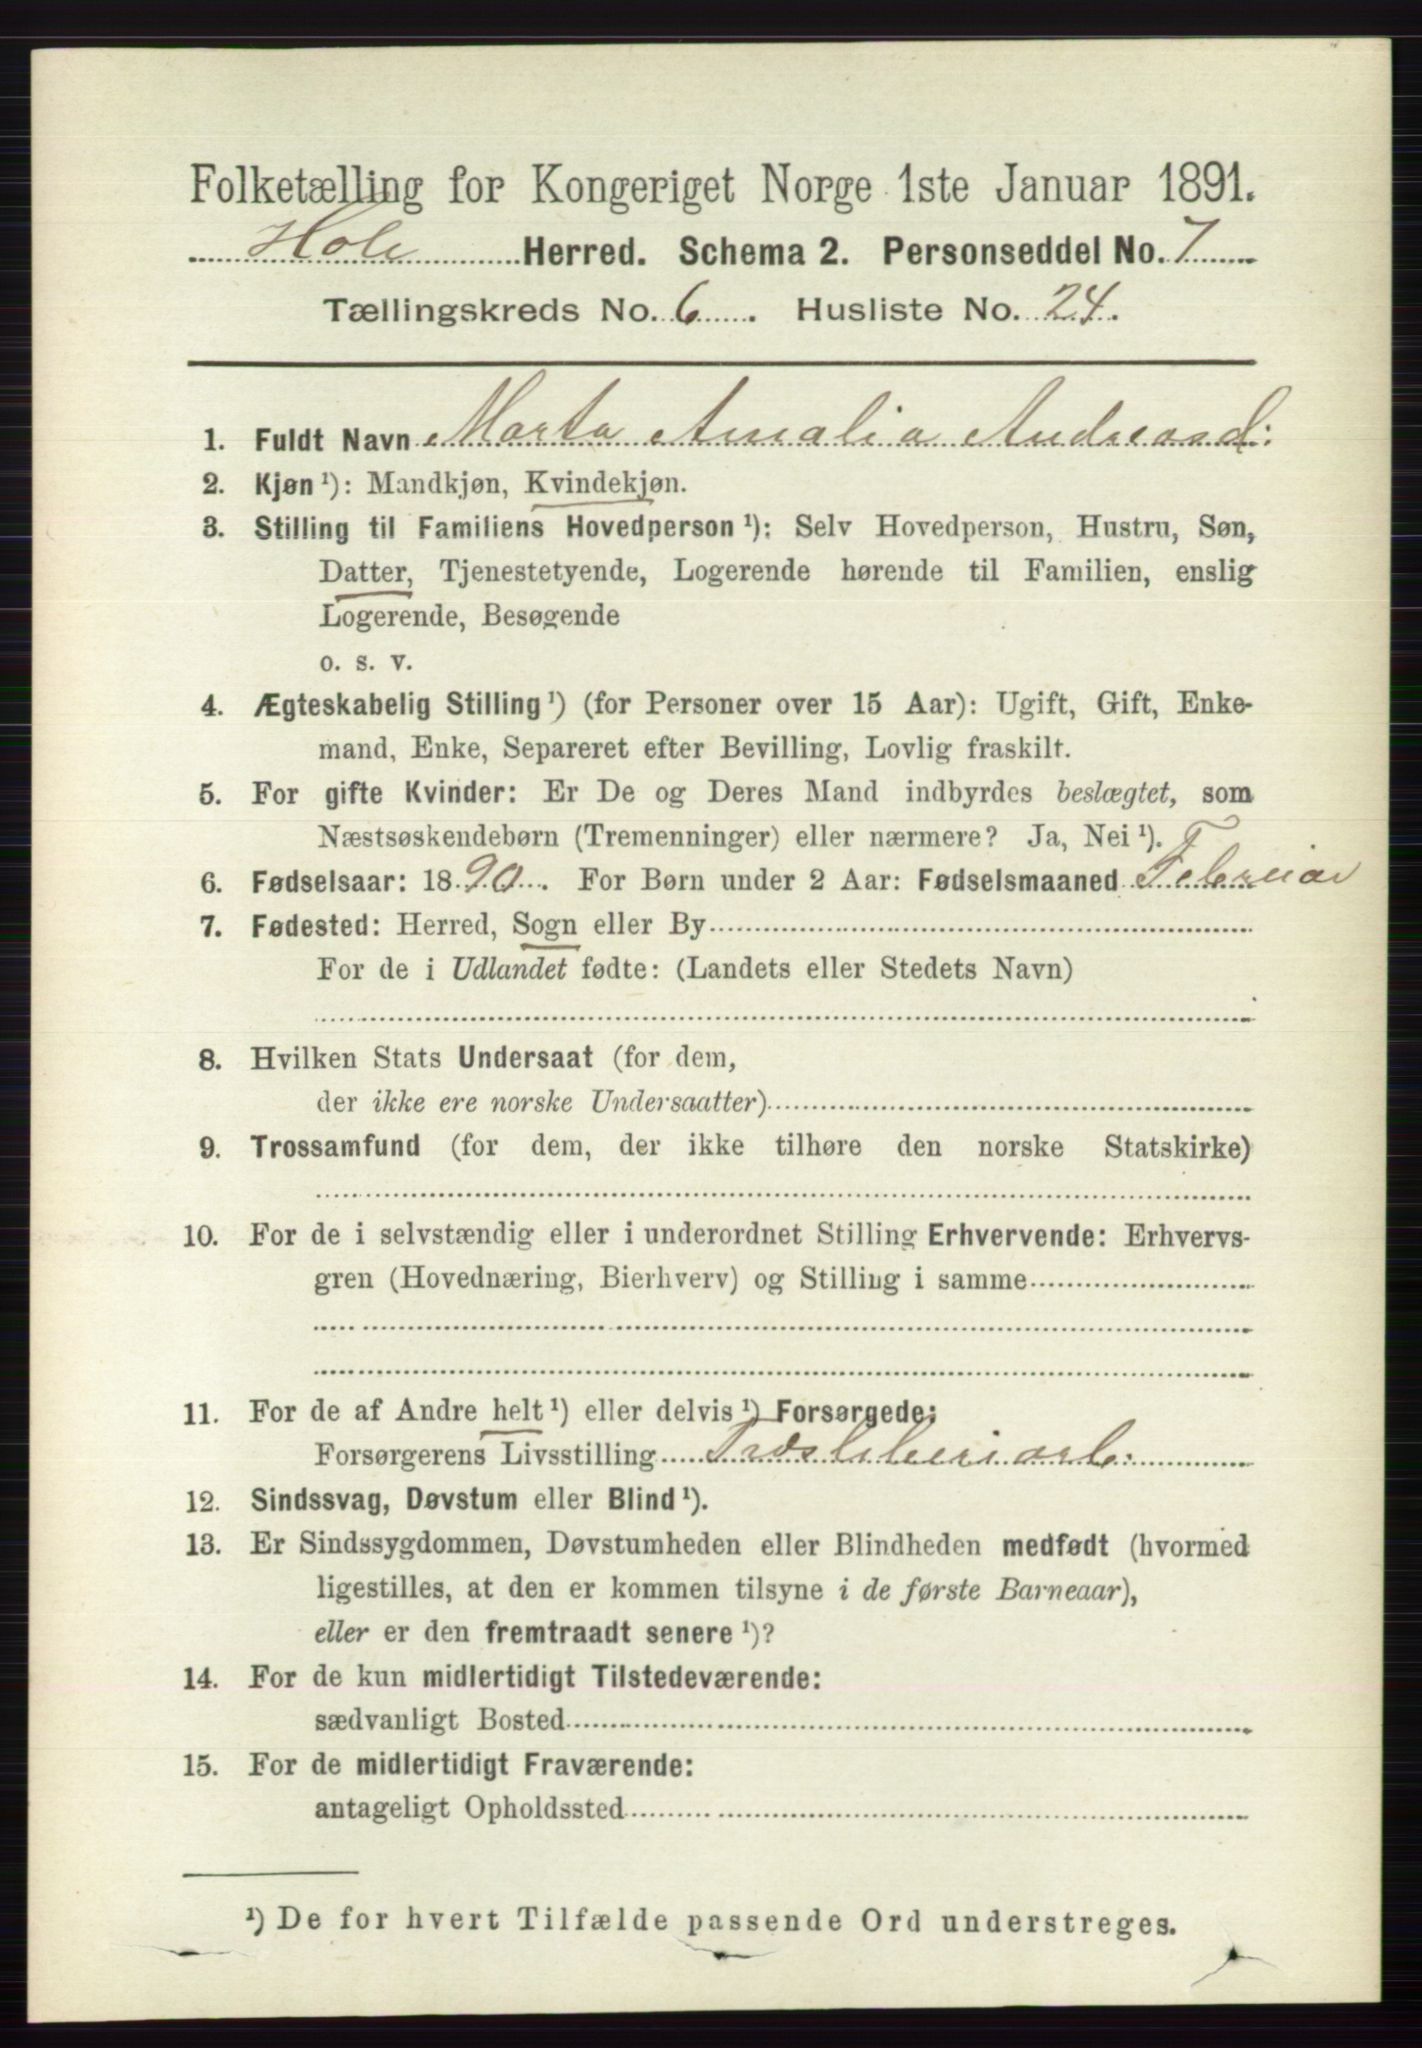 Folketælling for Kongeriget Norge 1ste Januar 1891.
Hole Herred. Schema 2. Personseddel No. 7
Tællingskreds No. 6. Husliste No. 24.
1. Fuldt Navn Marta Amalia Andreasd:
2. Kjøn ¹): Mandkjøn, Kvindekjøn.
3. Stilling til Familiens Hovedperson ¹): Selv Hovedperson, Hustru, Søn,
Datter, Tjenestetyende, Logerende hørende til Familien, enslig
Logerende, Besøgende
o. s. v.
4. Ægteskabelig Stilling ¹) (for Personer over 15 Aar): Ugift, Gift, Enke-
mand, Enke, Separeret efter Bevilling, Lovlig fraskilt.
5. For gifte Kvinder: Er De og Deres Mand indbyrdes beslægtet, som
Næstsøskendebørn (Tremenninger) eller nærmere? Ja, Nei ¹).
6. Fødselsaar: 1890. For Børn under 2 Aar: Fødselsmaaned Februar
7. Fødested: Herred, Sogn eller By
For de i Udlandet fødte: (Landets eller Stedets Navn)
8. Hvilken Stats Undersaat (for dem,
der ikke ere norske Undersaatter)
9. Trossamfund (for dem, der ikke tilhøre den norske Statskirke)
10. For de i selvstændig eller i underordnet Stilling Erhvervende: Erhvervs-
gren (Hovednæring, Bierhverv) og Stilling i samme
11. For de af Andre helt ¹) eller delvis ¹) Forsørgede:
Forsørgerens Livsstilling Træsliberiarb:
12. Sindssvag, Døvstum eller Blind ¹).
13. Er Sindssygdommen, Døvstumheden eller Blindheden medfødt (hvormed
ligestilles, at den er kommen tilsyne i de første Barneaar),
eller er den fremtraadt senere ¹)?
14. For de kun midlertidigt Tilstedeværende:
sædvanligt Bosted
15. For de midlertidigt Fraværende:
antageligt Opholdssted
¹) De for hvert Tilfælde passende Ord understreges.